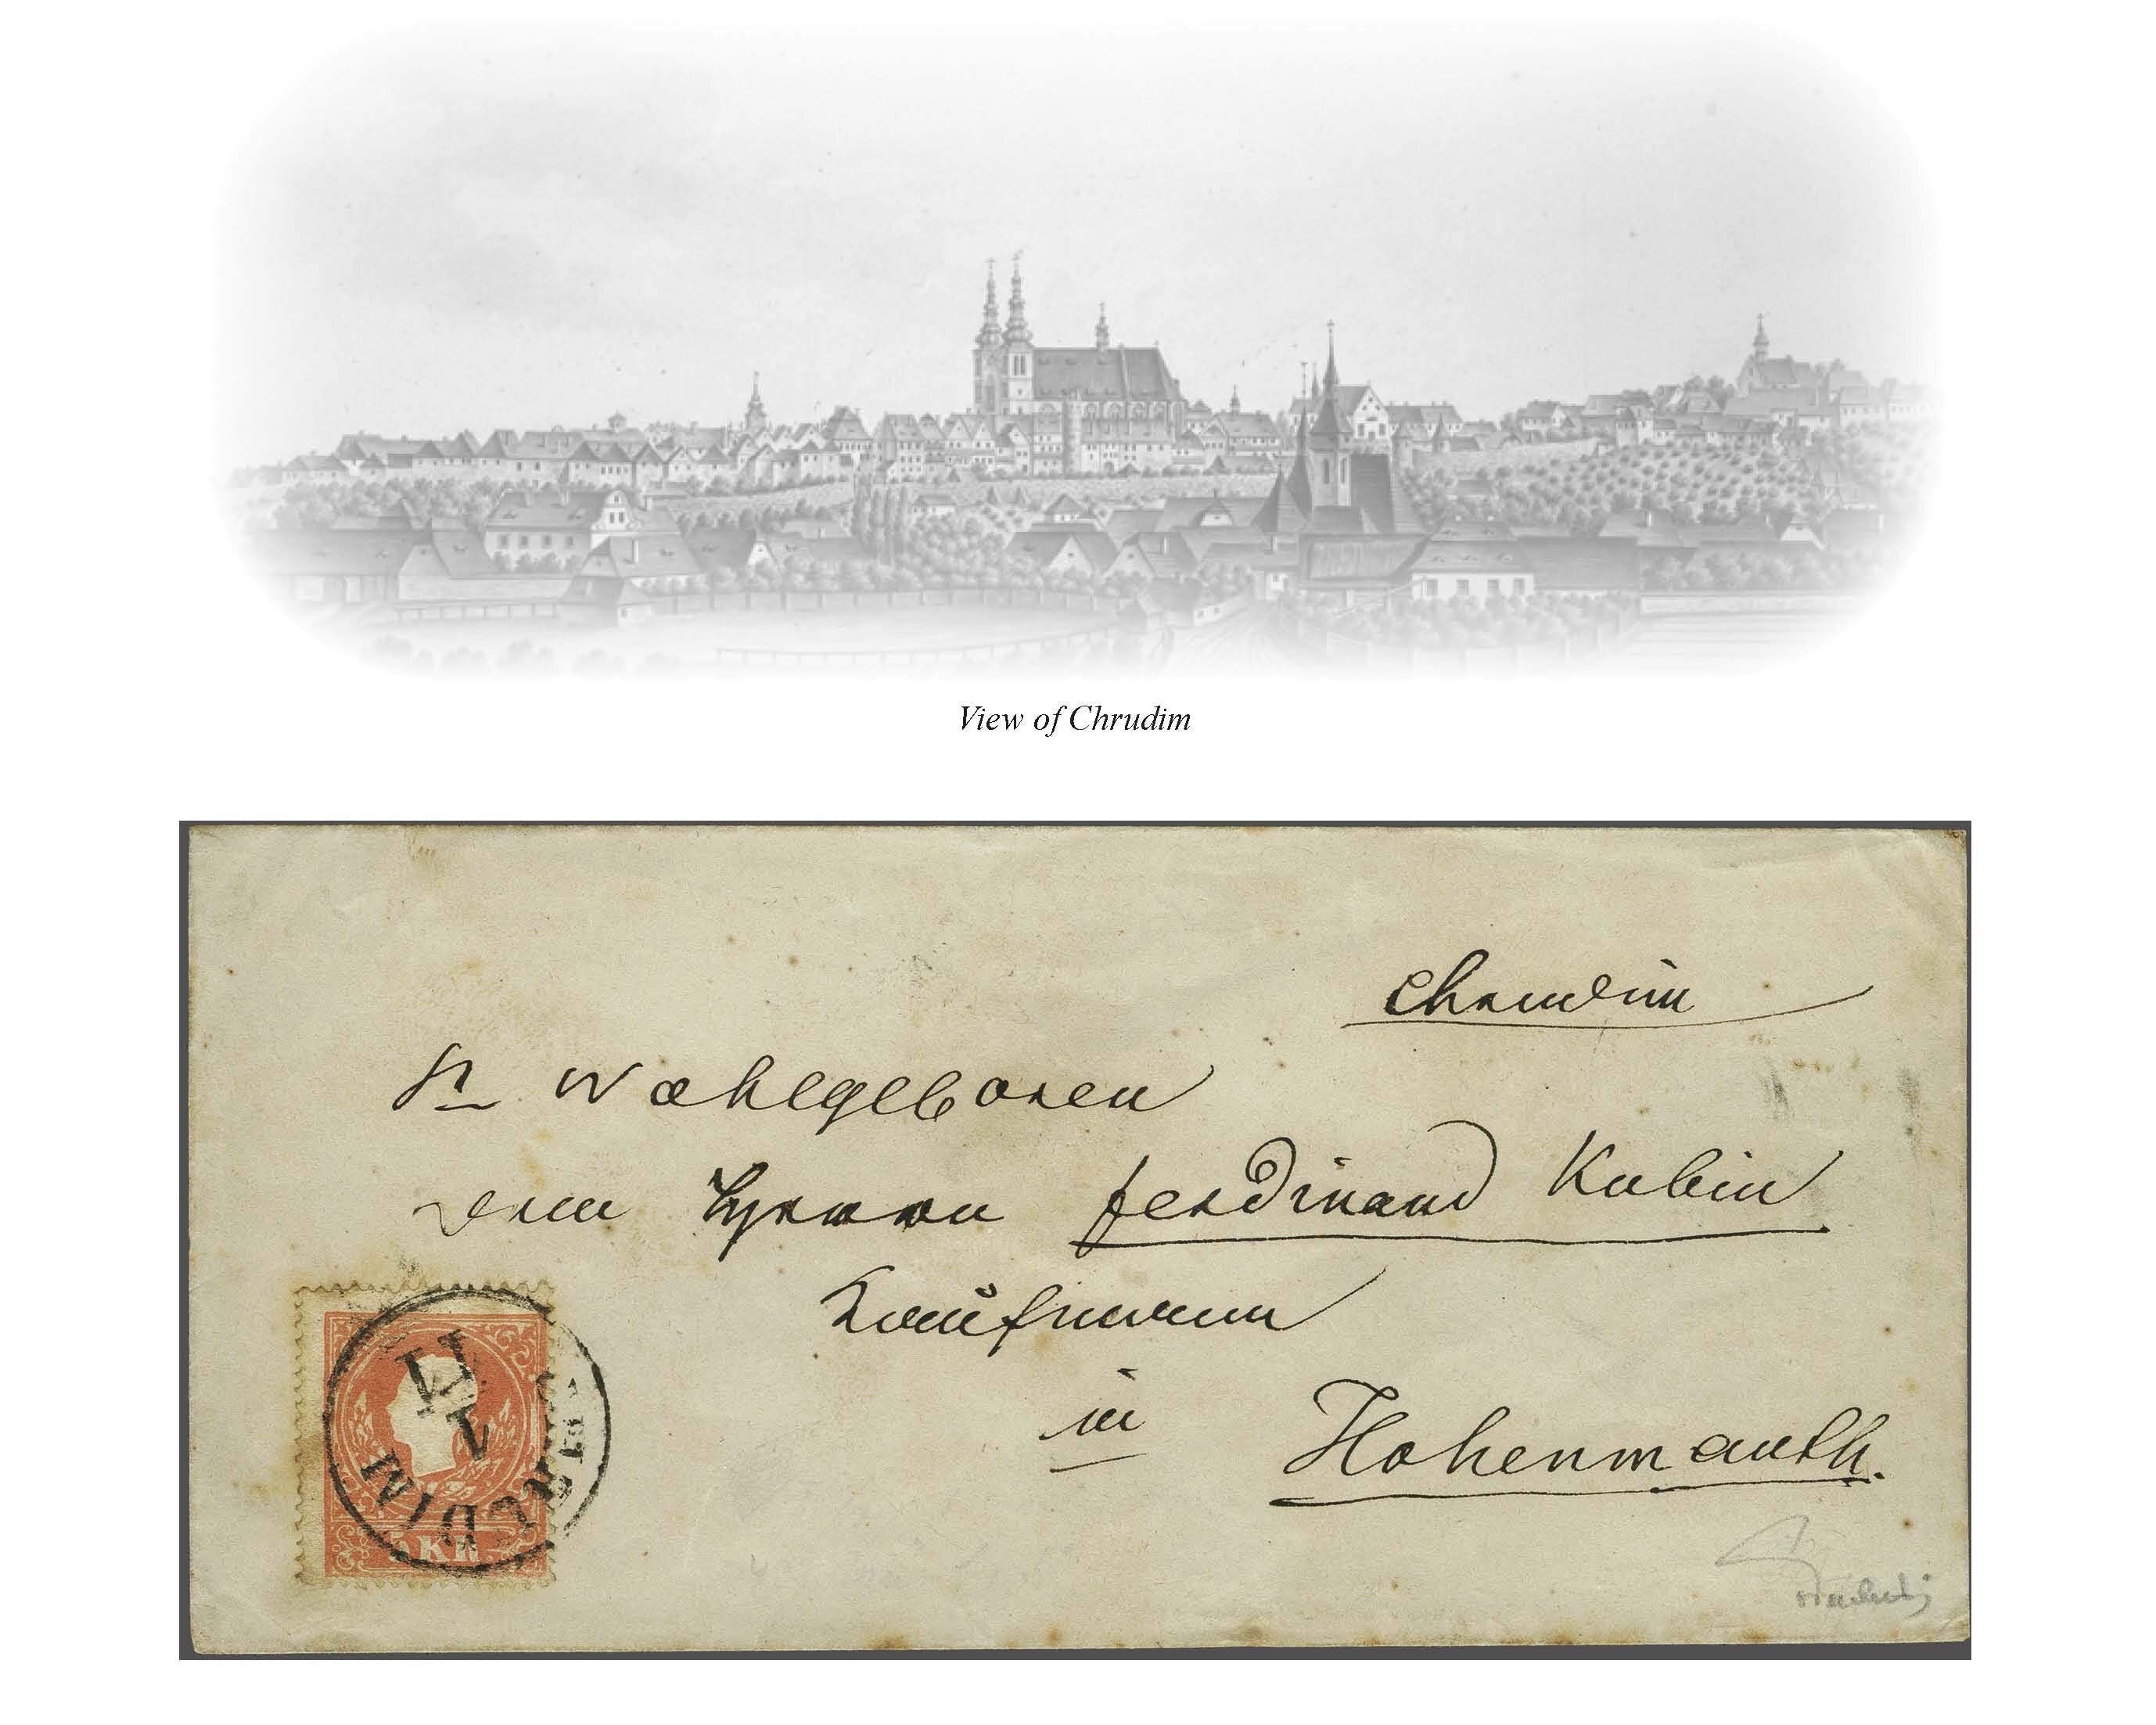 View of Chrudim
Chrudim
Sr Wohlgeboren
dem Herrn Ferdinand Kubin
Kaufmann
in
Hohenmauth.
11
1
CHRUDIM
5 KR